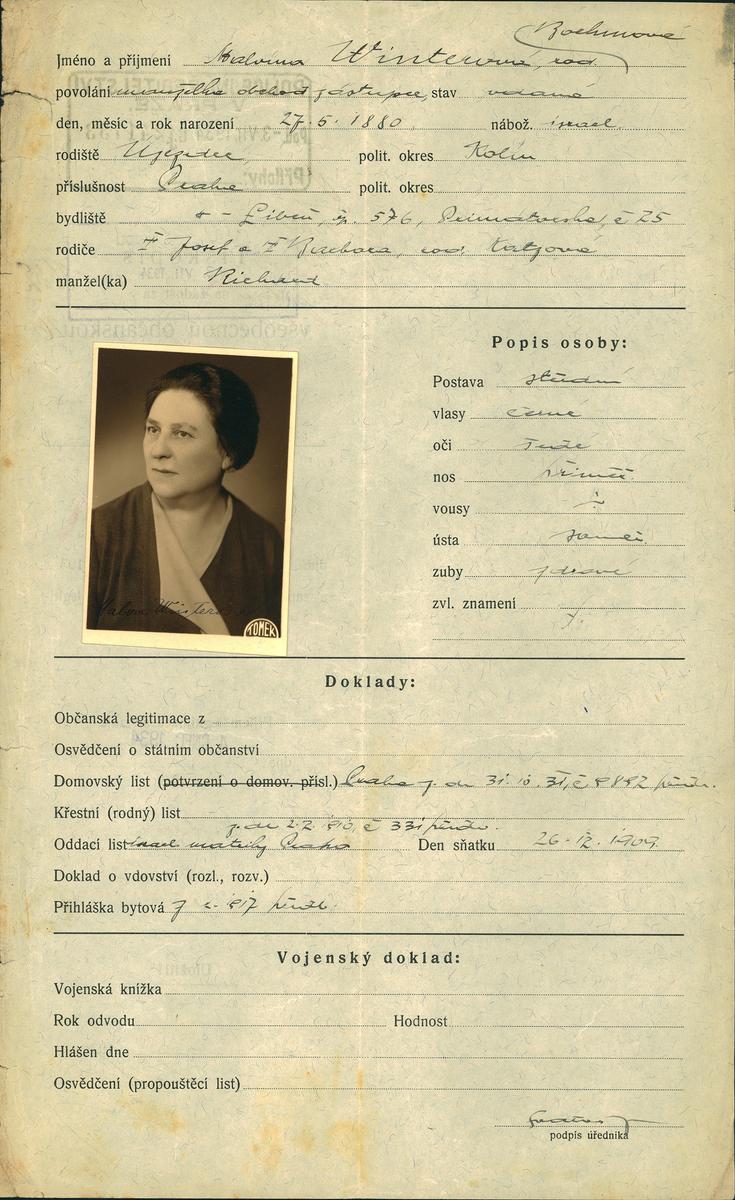 Bochmová
Jméno a příjmení Malvina Winterová, roz.
povolání manželka obchod. zástupce, stav vdaná
den, měsíc a rok narození 27. 5. 1880 nábož. israel.
rodiště Újezdec polit. okres Kolín
příslušnost Praha polit. okres
bydliště Libeň, čp. 576, Primátorská, č 25
rodiče Josef a Barbora, roz. Katzová
manžel(ka) Richard
Popis osoby:
Postava střední
vlasy černé
oči šedé
nos přiměř.
vousy
ústa souměr.
zuby zdravé
zvl. znamení
Malvina Winterová
TOMEK
Doklady:
Občanská legitimace z
Osvědčení o státním občanství
Domovský list (potvrzení o domov. přísl.) Praha z dne 31. 10. 31, č
Křestní (rodný) list
z dne 2. 2. 910, č 331
Oddací list israel. matriky Praha Den sňatku 26. 12. 1909
Doklad o vdovství (rozl., rozv.)
Přihláška bytová
Vojenský doklad:
Vojenská knížka
Rok odvodu Hodnost
Hlášen dne
Osvědčení (propouštěcí list)
podpis úředníka